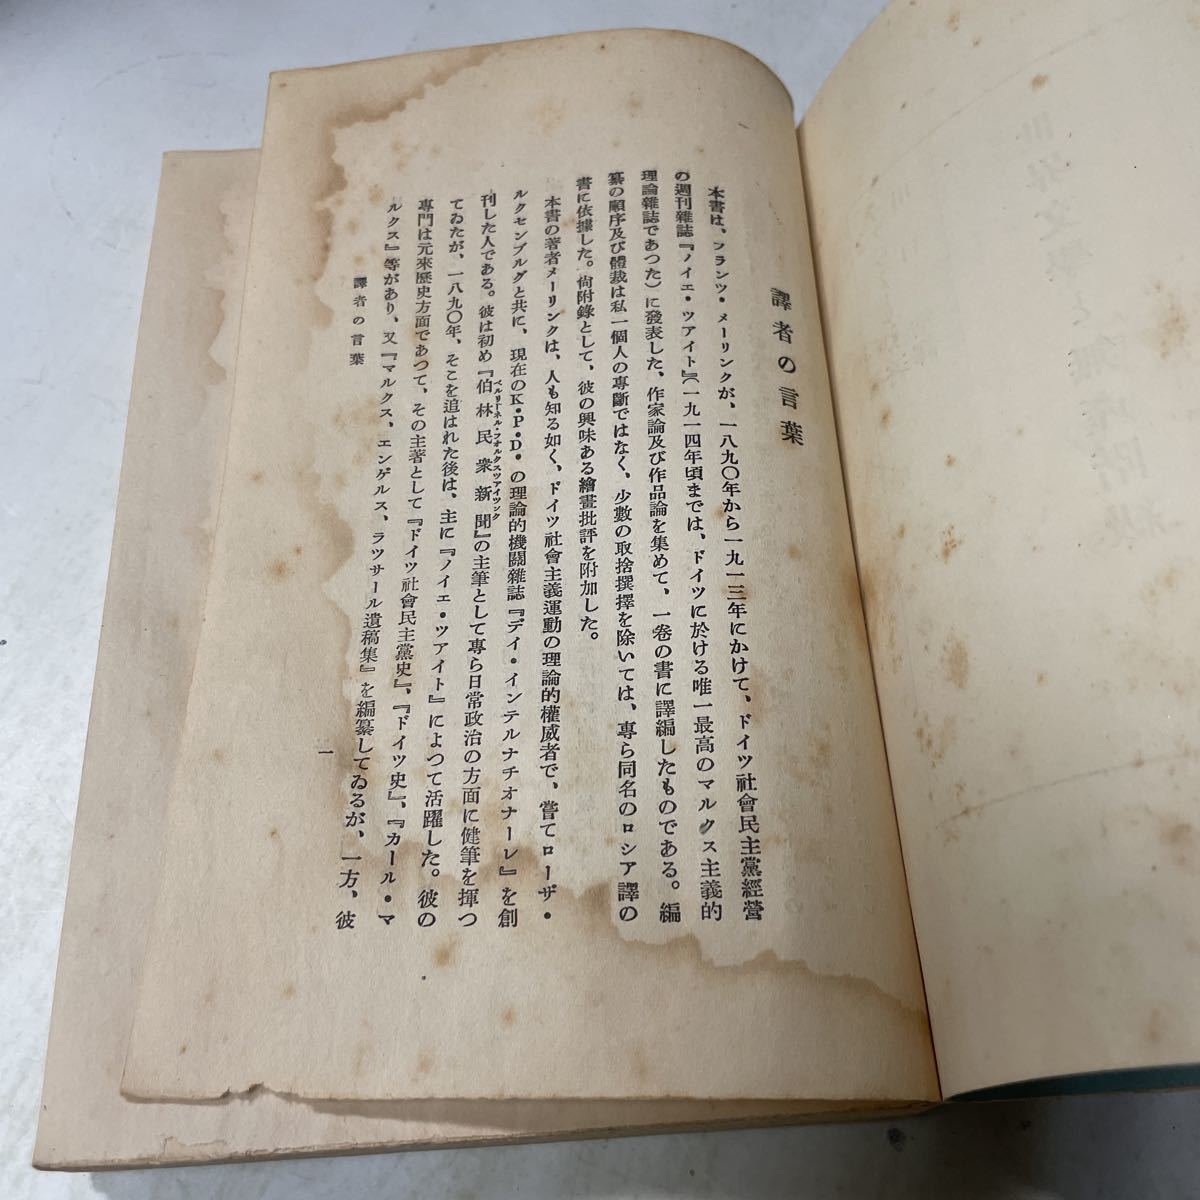 譯者の言葉
本書は、フランツ・メーリンクが、一八九〇年から一九一三年にかけて、ドイツ社會民主黨經營
の週刊雜誌『ノイエ・ツアイト』(一九一四年頃までは、ドイツに於ける唯一最高のマルクス主義的
理論雜誌であつた)に發表した、作家論及び作品論を集めて、一卷の書に譯編したものである。編
纂の順序及び體裁は私一個人の專斷ではなく、少數の取捨撰擇を除いては、專ら同名のロシア譯の
書に依據した。尙附錄として、彼の興味ある繪畫批評を附加した。
本書の著者メーリンクは、人も知る如く、ドイツ社會主義運動の理論的權威者で、嘗てローザ・
ルクセンブルグと共に、現在のK・P・D・の理論的機關雜誌『デイ・インテルナチオナーレ』を創
刊した人である。彼は初め『伯林民衆新聞』の主筆として專ら日常政治の方面に健筆を揮つ
ベルリーネル・フオルクスツアイツンク
てゐたが、一八九〇年、そこを追はれた後は、主に『ノイエ・ツアイト』によつて活躍した。彼の
專門は元來歷史方面であつて、その主著として『ドイツ社會民主黨史』、『ドイツ史』、『カール・マ
ルクス』等があり、又『マルクス、エンゲルス、ラツサール遺稿集』を編纂してゐるが、一方、彼
譯者の言葉
一